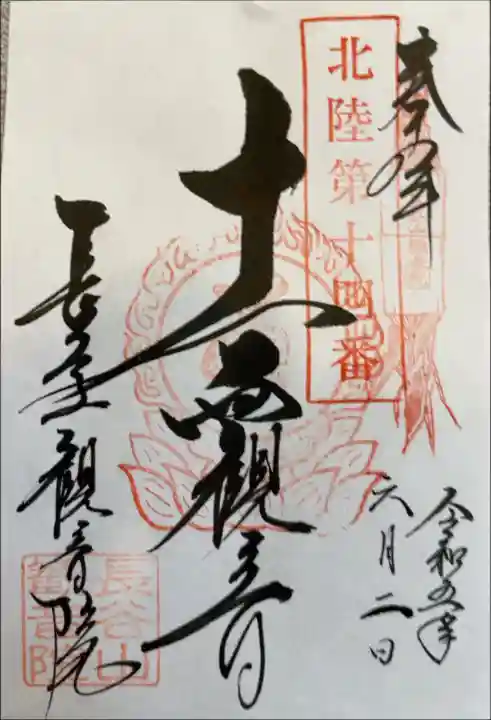 奉拝
北陸第十四番
令和五年
六月二日
十一面觀音
長谷山觀音院
長谷山
觀音院